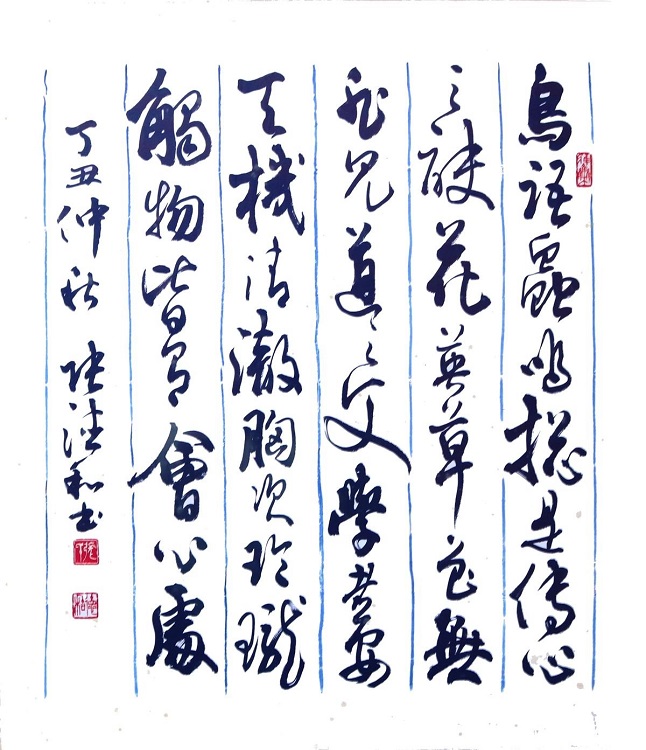 鳥語蟲鳴總是傳心
之訣花英草色無
非見道之文學者要
天機清澈胸次玲瓏
觸物皆有會心處
丁丑仲秋 張和書